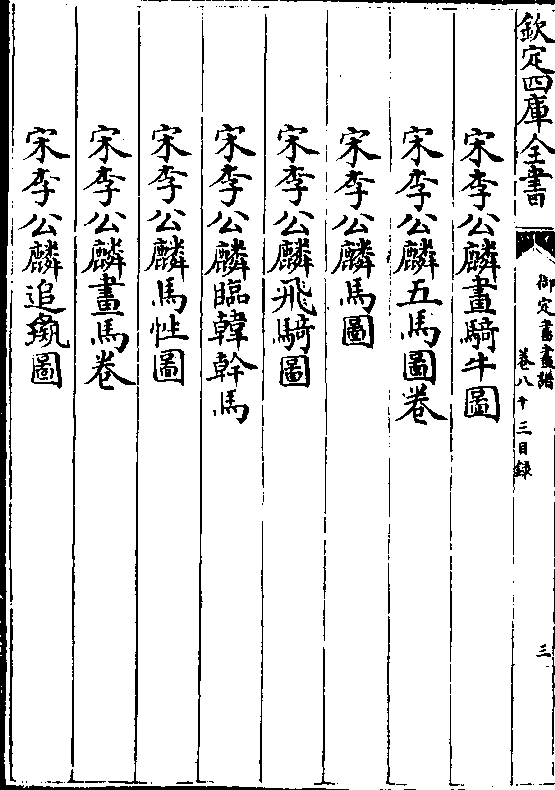 欽定四庫全書
御定書畫譜
卷八十三目録
三
宋李公麟畫騎牛圖
宋李公麟五馬圖卷
宋李公麟馬圖
宋李公麟飛騎圖
宋李公麟臨韓幹馬
宋李公麟馬性圖
宋李公麟畫馬卷
宋李公麟追圖